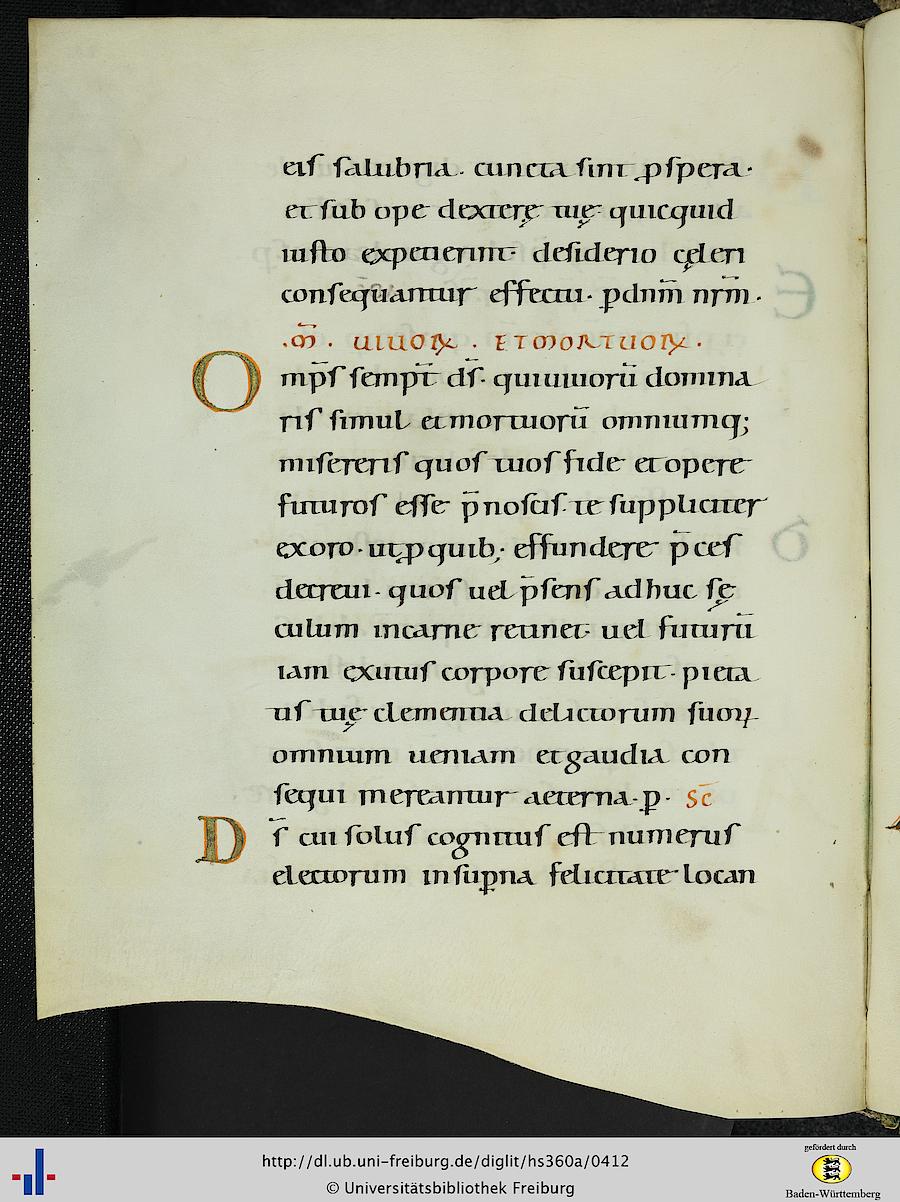 eis salubria. cuncta sint ꝓspera.
et sub ope dexterę tuę. quicquid
iusto expetierint. desiderio cęleri
consequantur effectu. ꝑ dn̄m nr̄m.
.M̄. UIUOꝜ. ET MORTUOꝜ.
Omp̄s sempt̄ ds̄. qui uiuorū domina
ris simul et mortuorū omniumq;
misereris quos tuos fide et opere
futuros esse p̄noscis. te suppliciter
exoro. ut ꝓ quib; effundere p̄ces
decreui. quos uel p̄sens adhuc sę
culum in carne retinet. uel futurū
iam exutus corpore suscepit. pieta
tis tuę clementia delictorum suoꝝ
omnium ueniam et gaudia con
sequi mereantur aeterna. ꝑ. Sc̄
Ds̄ cui solus cognitus est numerus
electorum in suꝑna felicitate locan
http://dl.ub.uni-freiburg.de/diglit/hs360a/0412
© Universitätsbibliothek Freiburg
gefördert durch
Baden-Württemberg